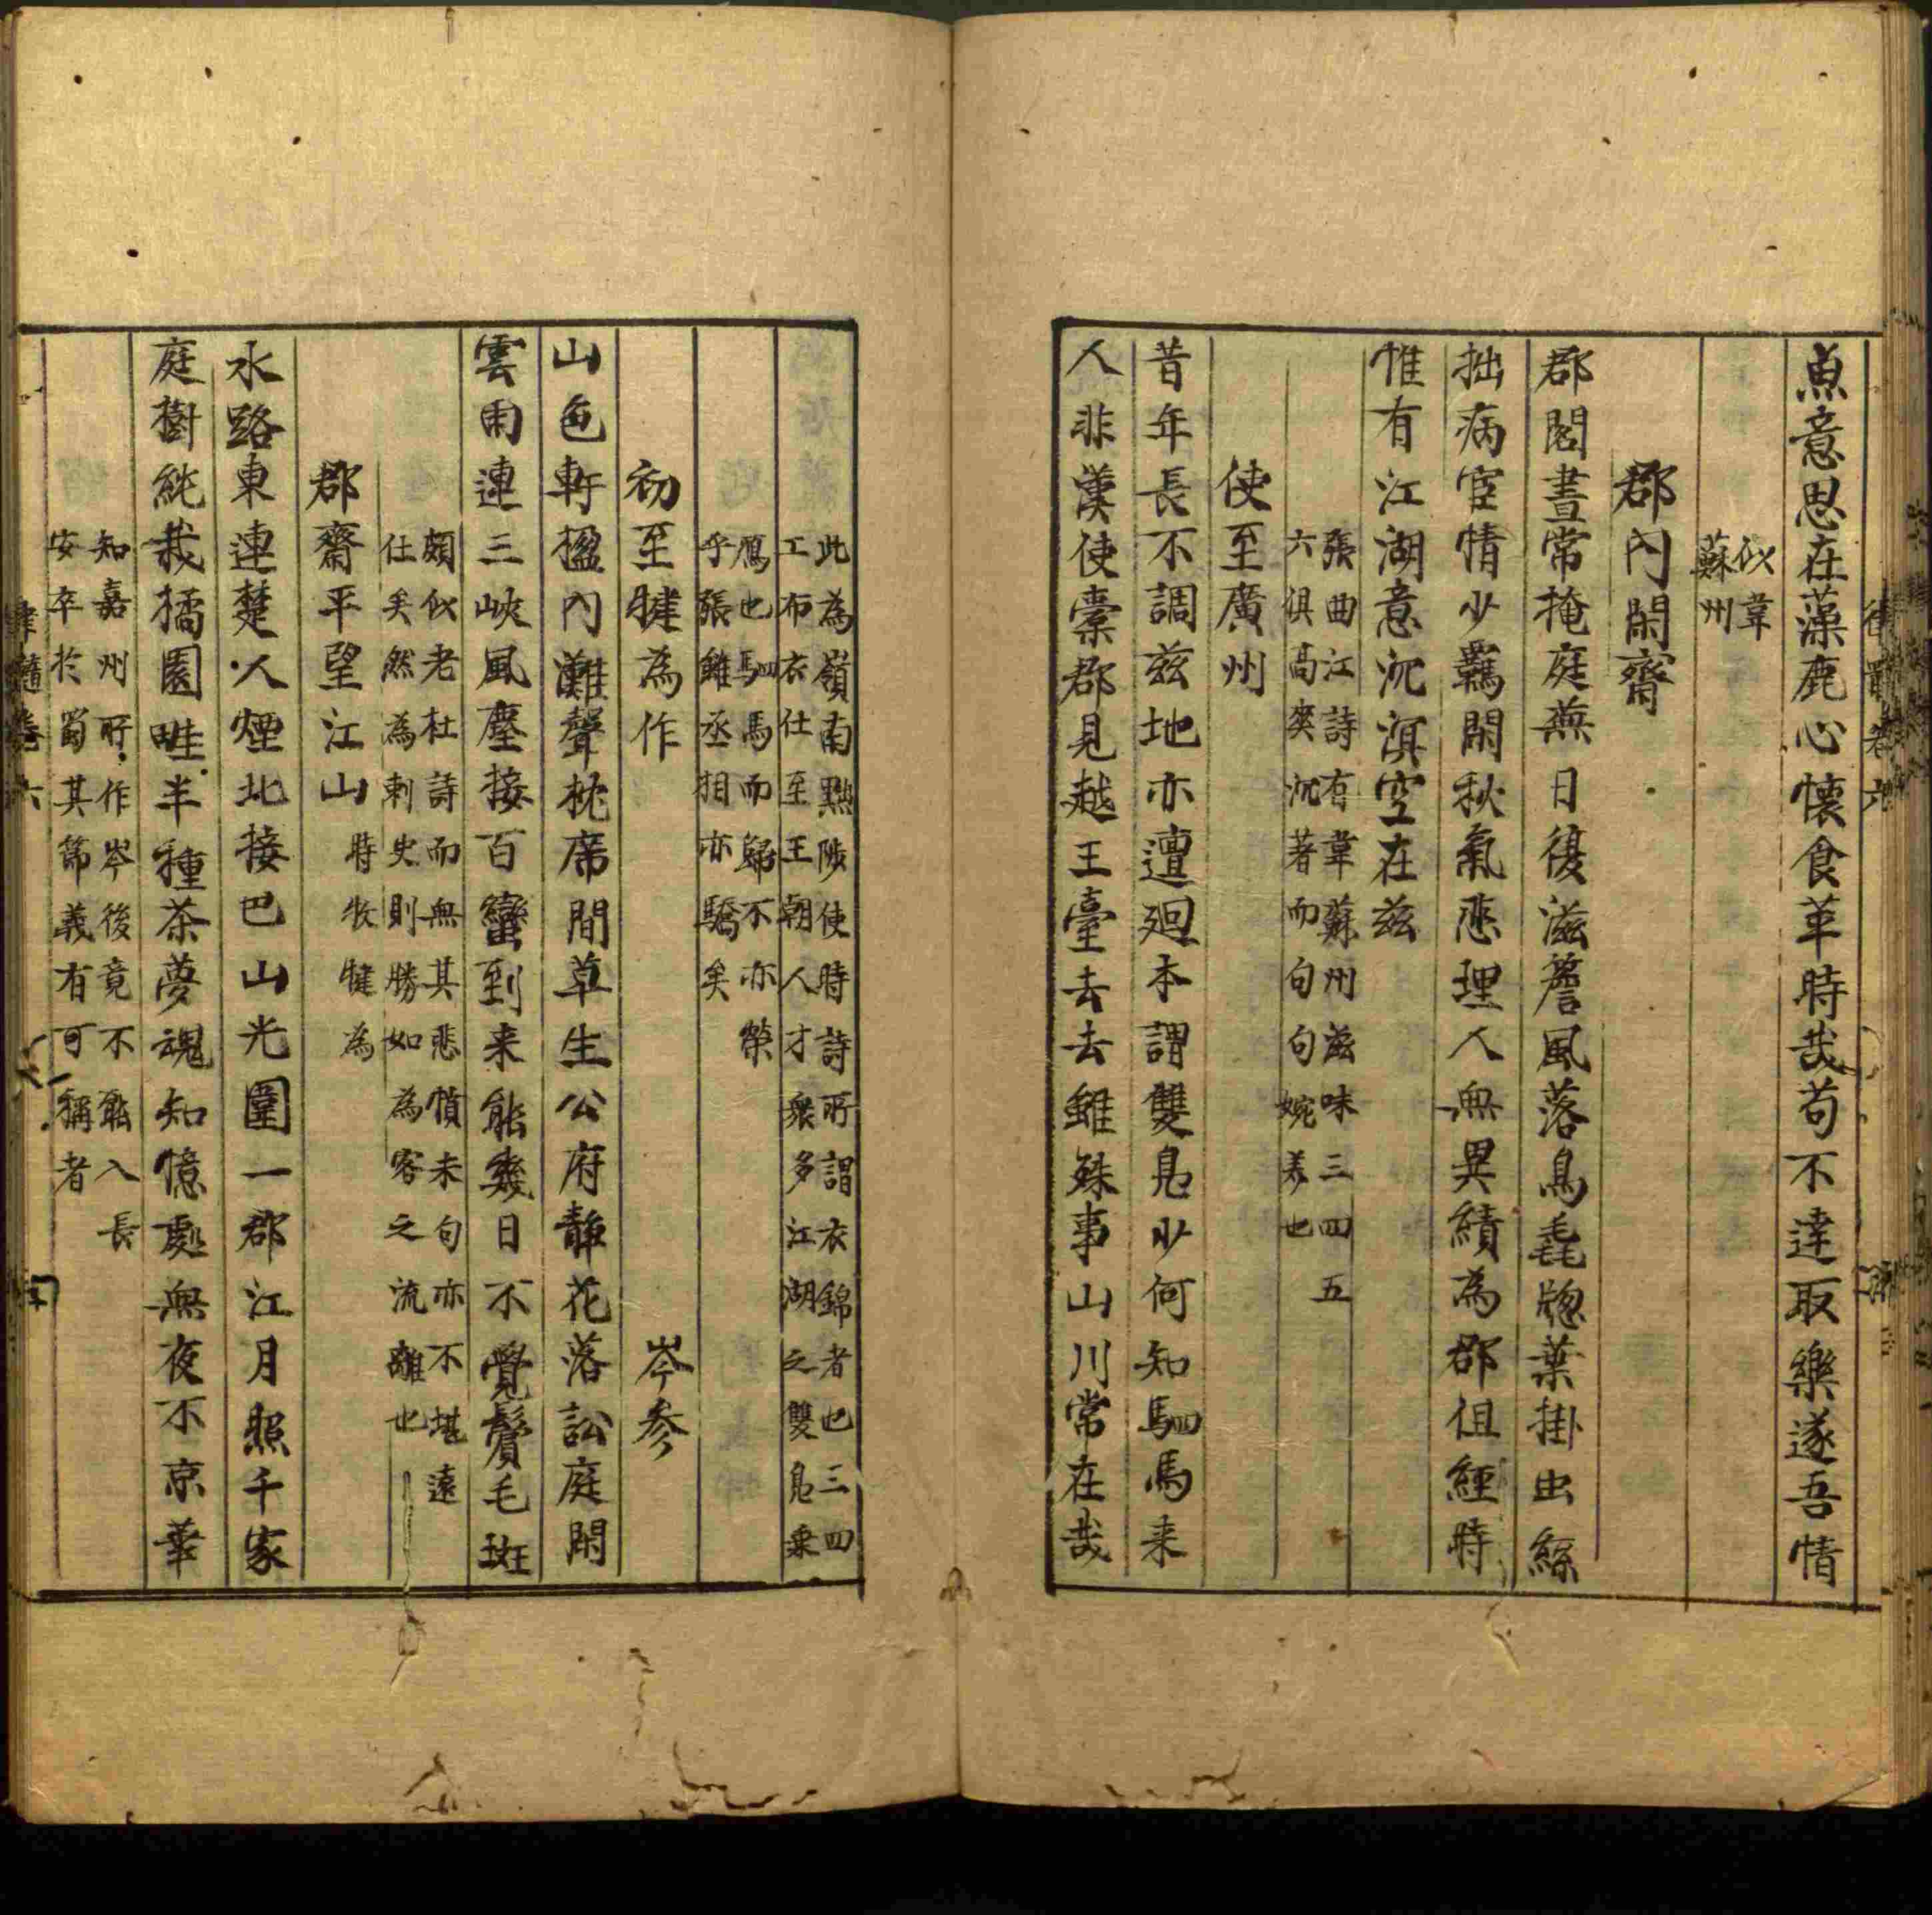 魚意思在藻鹿心懷食苹時哉苟不達取樂遂吾情
似韋
蘇州
郡內閑齋
郡閣晝常掩庭蕪日復滋簷風落鳥毳牕葉掛虫絲
拙病宦情少羈閑秋氣悲理人無異績為郡徂經時
惟有江湖意沉溟空在兹
張曲江詩有韋蘇州滋味三四五
六俱高爽沉著而句句婉美也
使至廣州
昔年長不調兹地亦邅廻本謂雙鳬少何知駟馬来
人非漢使槖郡見越王臺去去雖殊事山川常在哉
此為嶺南黜陟使時詩所謂衣錦者也三四
工布衣仕至王朝人才衆多江湖之雙鳬乗
鴈也駟馬而歸不亦榮
乎張雖丞相亦驕矣
初至犍為作 岑参
山色軒楹內灘聲枕席間草生公府靜花落訟庭閑
雲雨連三峽風塵接百蠻到来能幾日不覺鬢毛斑
頗似老杜詩而無其悲憤末句亦不堪遠
仕矣然為刺史則勝如為客之流離也
郡齋平望江山時牧犍為
水路東連楚人煙北接巴山光圍一郡江月照千家
庭樹純栽橘園畦半種茶夢魂知憶處無夜不京華
知嘉州所作岑後竟不能入長
安卒於蜀其節義有可稱者
律髓卷六